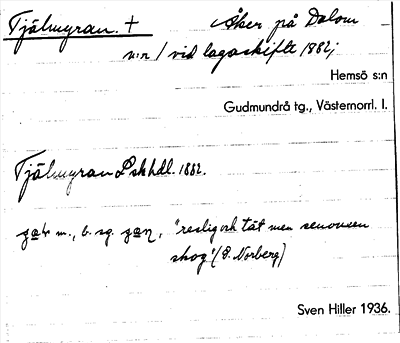 Tjälmyran. + Åker på Dalom
n:r 1 vid lagaskifte 1882;
Hemsö s:n
Gudmundrå tg., Västernorrl. l.
Tjälmyran L skhdl. 1882.
m., b. sg. "reslig och tät men senvuxen
skog" (P. Norberg)
Sven Hiller 1936.